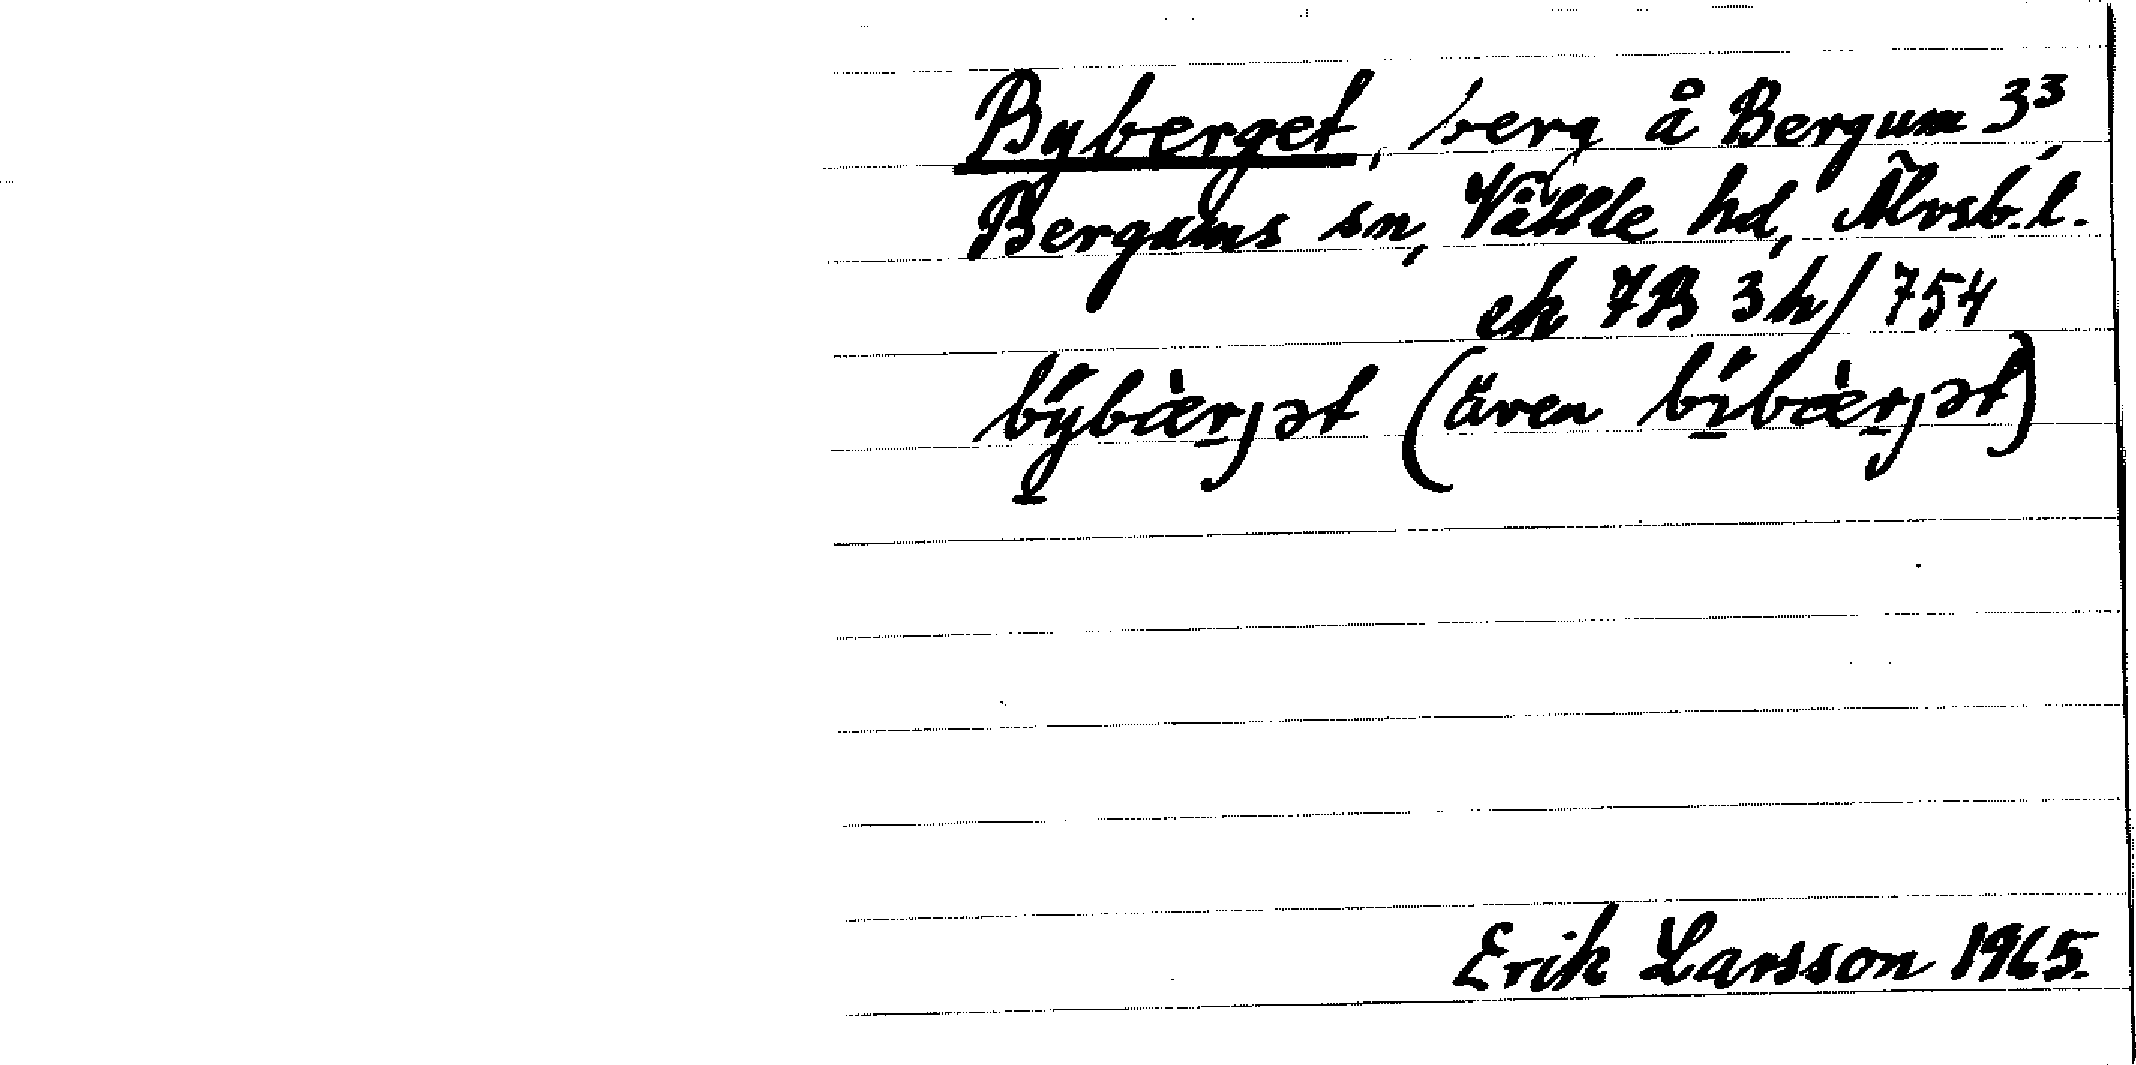 Byberget, berg å Bergum 3³,
Bergums sn, Vättle hd, Älvsb. l.
ek 7B 3h/754
býbæ̀rjət (även bíbæ̀rjət)
Erik Larsson 1965.